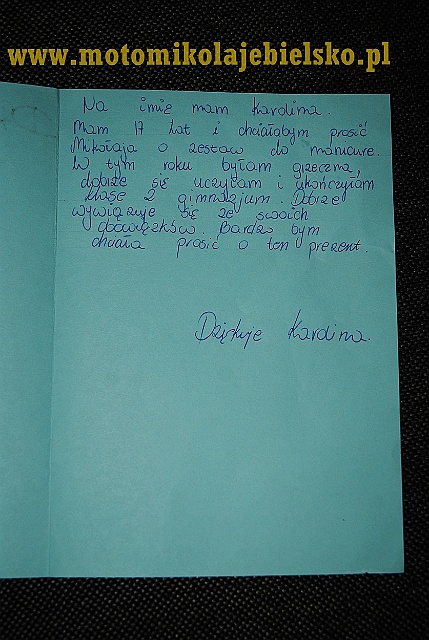 www.motomikolajebielsko.pl
Na imię mam Karolina.
Mam 17 lat i chciałabym prosić
Mikołaja o zestaw do manicure.
W tym roku byłam grzeczna,
dobrze się uczyłam i ukończyłam
klasę 2 gimnazjum. Dobrze
wywiązuje się ze swoich
obowiązków. Bardzo bym
chciała prosić o ten prezent.
Dziękuje Karolina.